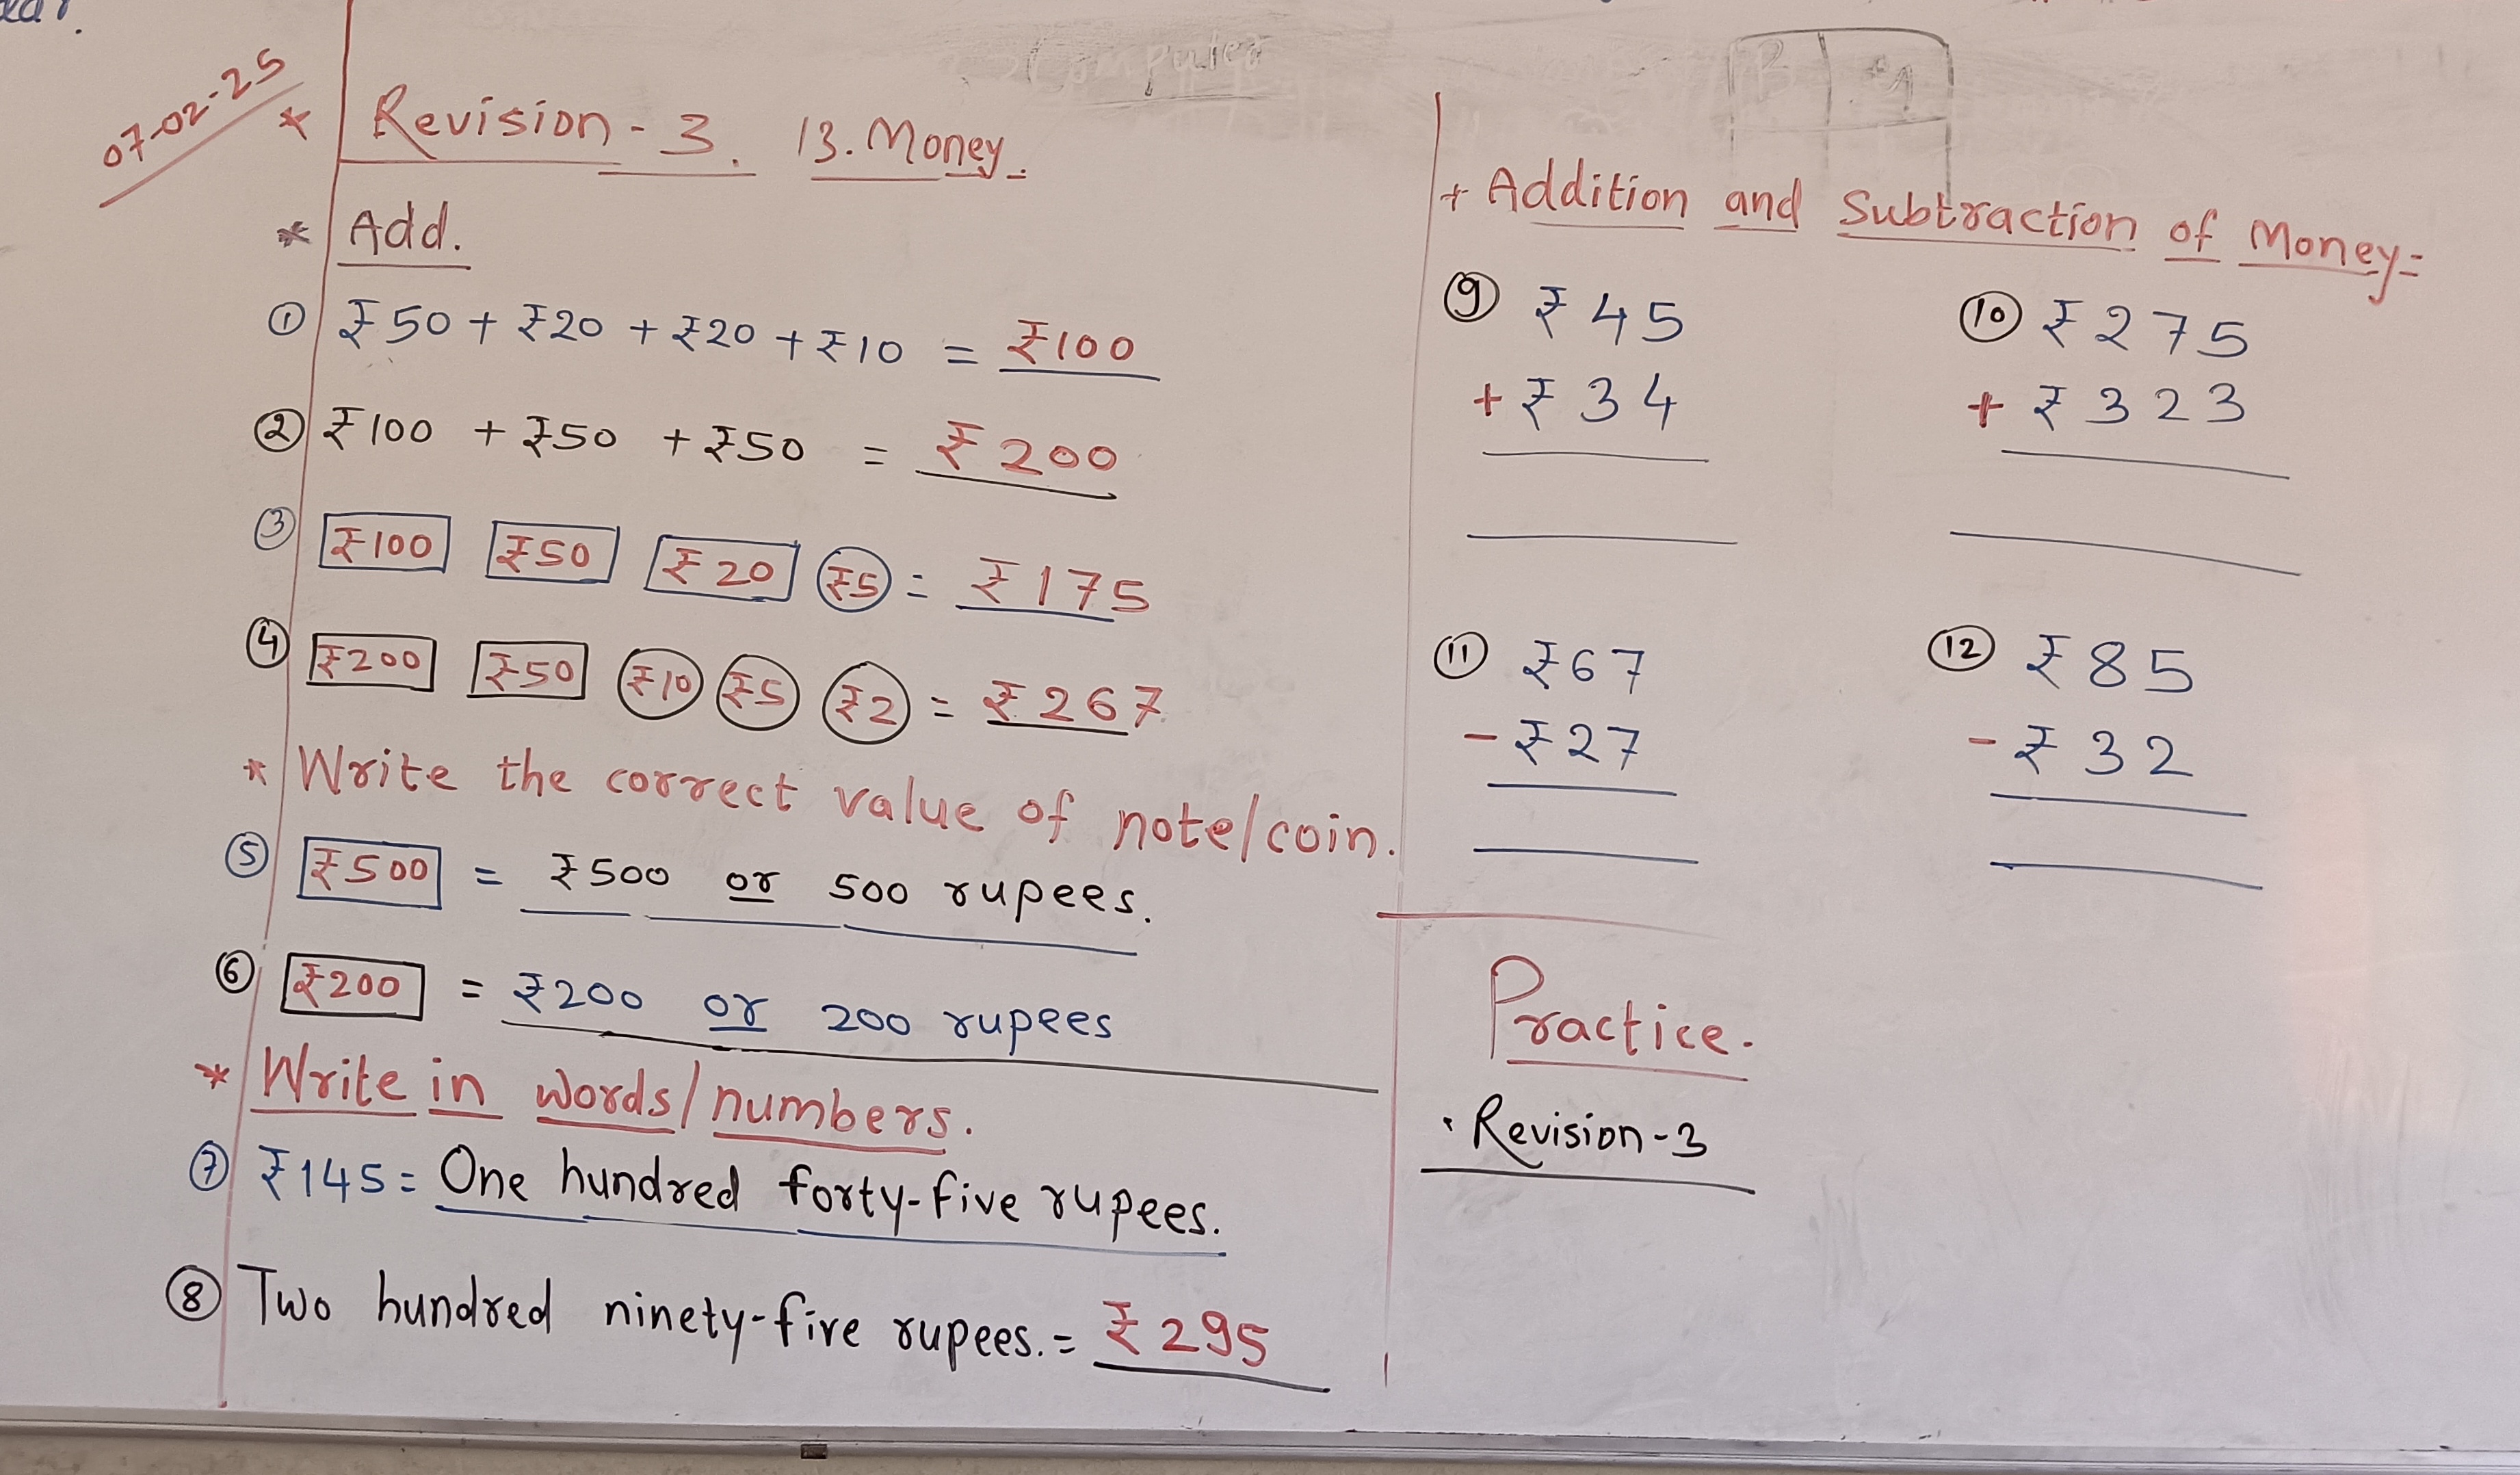 07-02-25
* Revision - 3. 13. Money.
* Add.
① ₹50 + ₹20 + ₹20 + ₹10 = ₹100
② ₹100 + ₹50 + ₹50 = ₹200
③ ₹100 ₹50 ₹20 ₹5 = ₹175
④ ₹200 ₹50 ₹10 ₹5 ₹2 = ₹267
* Write the correct value of note/coin.
⑤ ₹500 = ₹500 or 500 rupees.
⑥ ₹200 = ₹200 or 200 rupees
* Write in words/numbers.
⑦ ₹145 = One hundred forty-five rupees.
⑧ Two hundred ninety-five rupees. = ₹295
+ Addition and Subtraction of Money-
⑨ ₹45 ⑩ ₹275
+ ₹34 + ₹323
⑪ ₹67 ⑫ ₹85
- ₹27 - ₹32
Practice.
· Revision-3
Computer